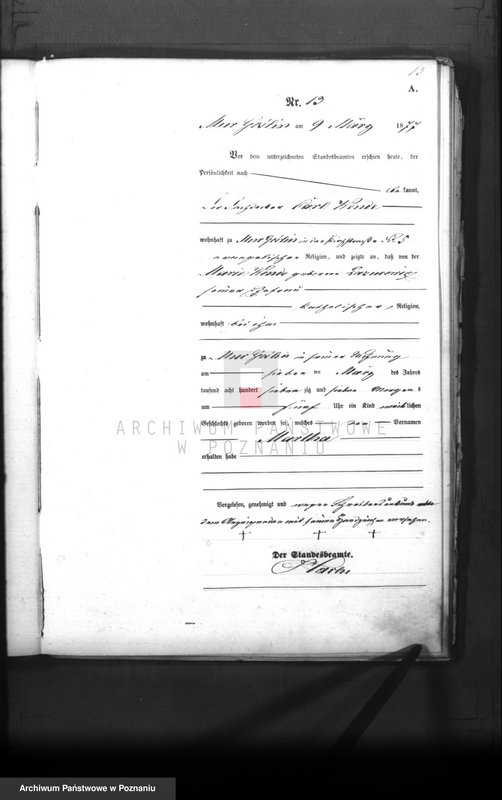 13
A.
Nr. 13
Mur Goślin am 9 März 1877
Vor dem unterzeichneten Standesbeamten erschien heute, der
Persönlichkeit nach
bekannt,
der Carl
wohnhaft zu Mur Goślin in der № 5
evangelischer Religion, und zeigte an, daß von der
Marie geborene
seiner Ehefrau
katholischer Religion,
wohnhaft bei ihm
zu Mur Goślin in seiner Wohnung
am sieben ten März des Jahres
tausend acht hundert sieben zig und sieben Morgens
um fünf Uhr ein Kind weiblichen
Geschlechts geboren worden sei, welches den Vornamen
ARCHIWUM PAŃSTWOWE
W POZNANIU
Martha
erhalten habe
Vorgelesen, genehmigt und wegen
dem mit seinem Handzeichen versehen.
† † †
Der Standesbeamte.
Archiwum Państwowe w Poznaniu